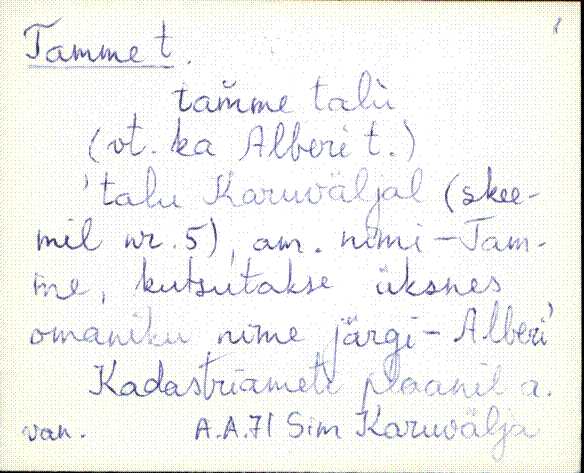 Tamme t.
tam̆me talu
(vt. ka Alberi t.)
'talu Karuväljal (skee-
mil nr. 5), am. nimi - Tam-
me, kutsutakse üksnes
omaniku nime järgi - Alberi'
Kadastriameti plaanil a.
van. A.A.71 Sim Karuvälja